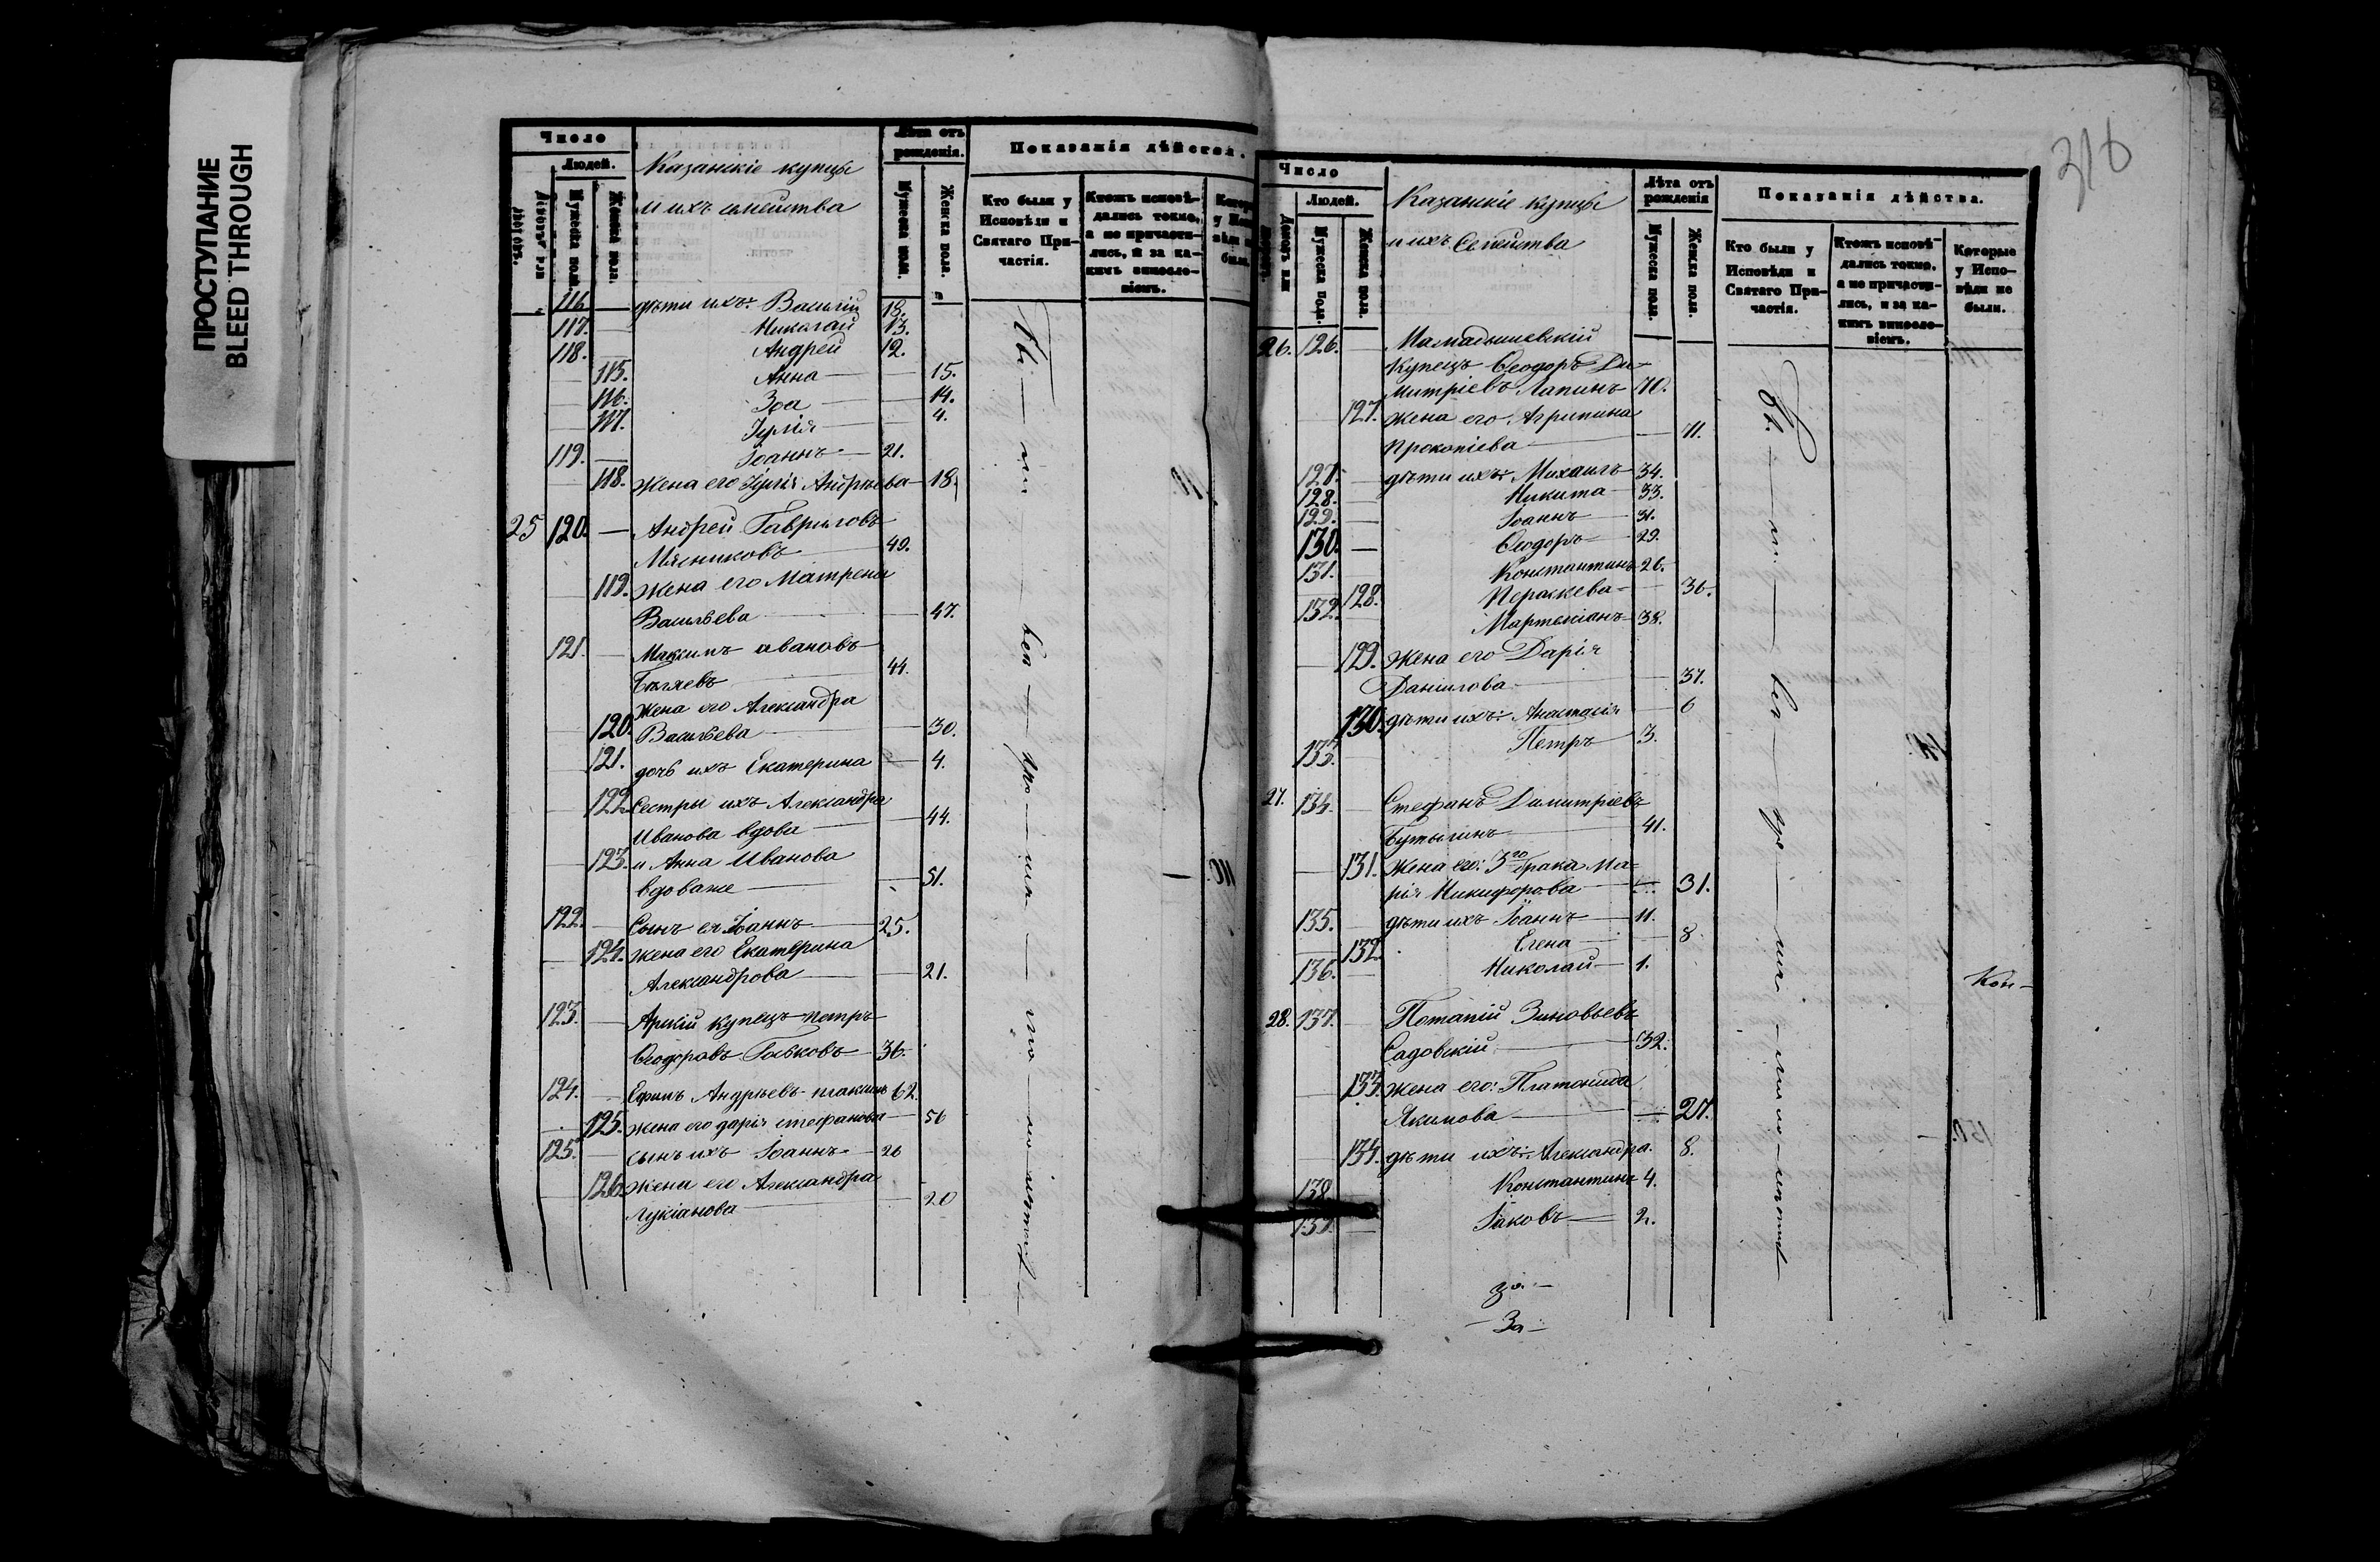 ПРОСТУПАНИЕ
BLEED THROUGH
Число
Людей.
Мужеска пола.
Женска пола.
Казанскіе купцы
и ихъ семейства
Лѣта отъ
рожденія.
Мужеска пола.
Женска пола.
Показанія дѣйства.
Кто были у
Исповѣди и
Святаго При-
частія.
Ктожъ исповѣ-
дались токмо,
а не причасти-
лись, и за ка-
кимъ винословіемъ.
116. дѣти ихъ: Василій 18.
117. Николай 13.
118. Андрей 12.
115. Анна 15.
116. Зоя 14.
117. Іулія 4.
119. Іоаннъ 21.
118. Жена его Іулія Андрѣева 18.
25 120. Андрей Гавриловъ
Мясниковъ 49.
119. Жена его Матрена
Васильева 47.
121. Максимъ Ивановъ
Бѣляевъ 44.
Жена его Александра
120. Васильева 30.
121. дочь ихъ Екатерина 4.
122. Сестры ихъ Александра
Иванова вдова 44.
123. и Анна Иванова
вдоваже 51.
122. Сынъ ея Іоаннъ 25.
124. Жена его Екатерина
Александрова 21.
123. Арскій купецъ Петръ
Ѳеодоровъ 36.
124. Ефимъ Андрѣевъ 62.
125. жена его Дарія Стефанова 56
125. сынъ ихъ Іоаннъ 26
126. Жена его Александра
Лукіанова 20
316
Число
Людей.
Мужеска пола.
Женска пола.
Казанскіе купцы
и ихъ Семейства
Лѣта отъ
рожденія
Мужеска пола.
Женска пола.
Показанія дѣйства.
Кто были у
Исповѣди и
Святаго При-
частія.
Ктожъ исповѣ-
дались токмо,
а не причасти-
лись, и за ка-
кимъ винословіемъ.
Которые
у Испо-
вѣди не
были.
26. 126. Мамадышевскій
Купецъ Ѳеодоръ Ди-
митріевъ Лапинъ 70.
127. Жена его Агрипина
Прокопіева 71.
127. дѣти ихъ: Михаилъ 34.
128. Никита 33.
129. Іоаннъ 31.
130. Ѳеодоръ 29.
131. Константинъ 26.
128. Параскева 36.
132. Мартиніанъ 38.
129. Жена его Дарія
Даніилова 37.
130. дѣти ихъ: Анастасія 6
133. Петръ 3.
27. 134. Стефанъ Димитріевъ
Бутылинъ 41.
131. Жена его: 3го брака Ма-
рія Никифорова 31.
135. дѣти ихъ Іоаннъ 11.
132. Елена 8
136. Николай 1.
28. 137. Потапій Зиновьевъ
Садовскій 32.
133. Жена его: Платонида
Якимова 27.
134. дѣти ихъ: Александра 8.
138. Константинъ 4.
139. Іаковъ 2.